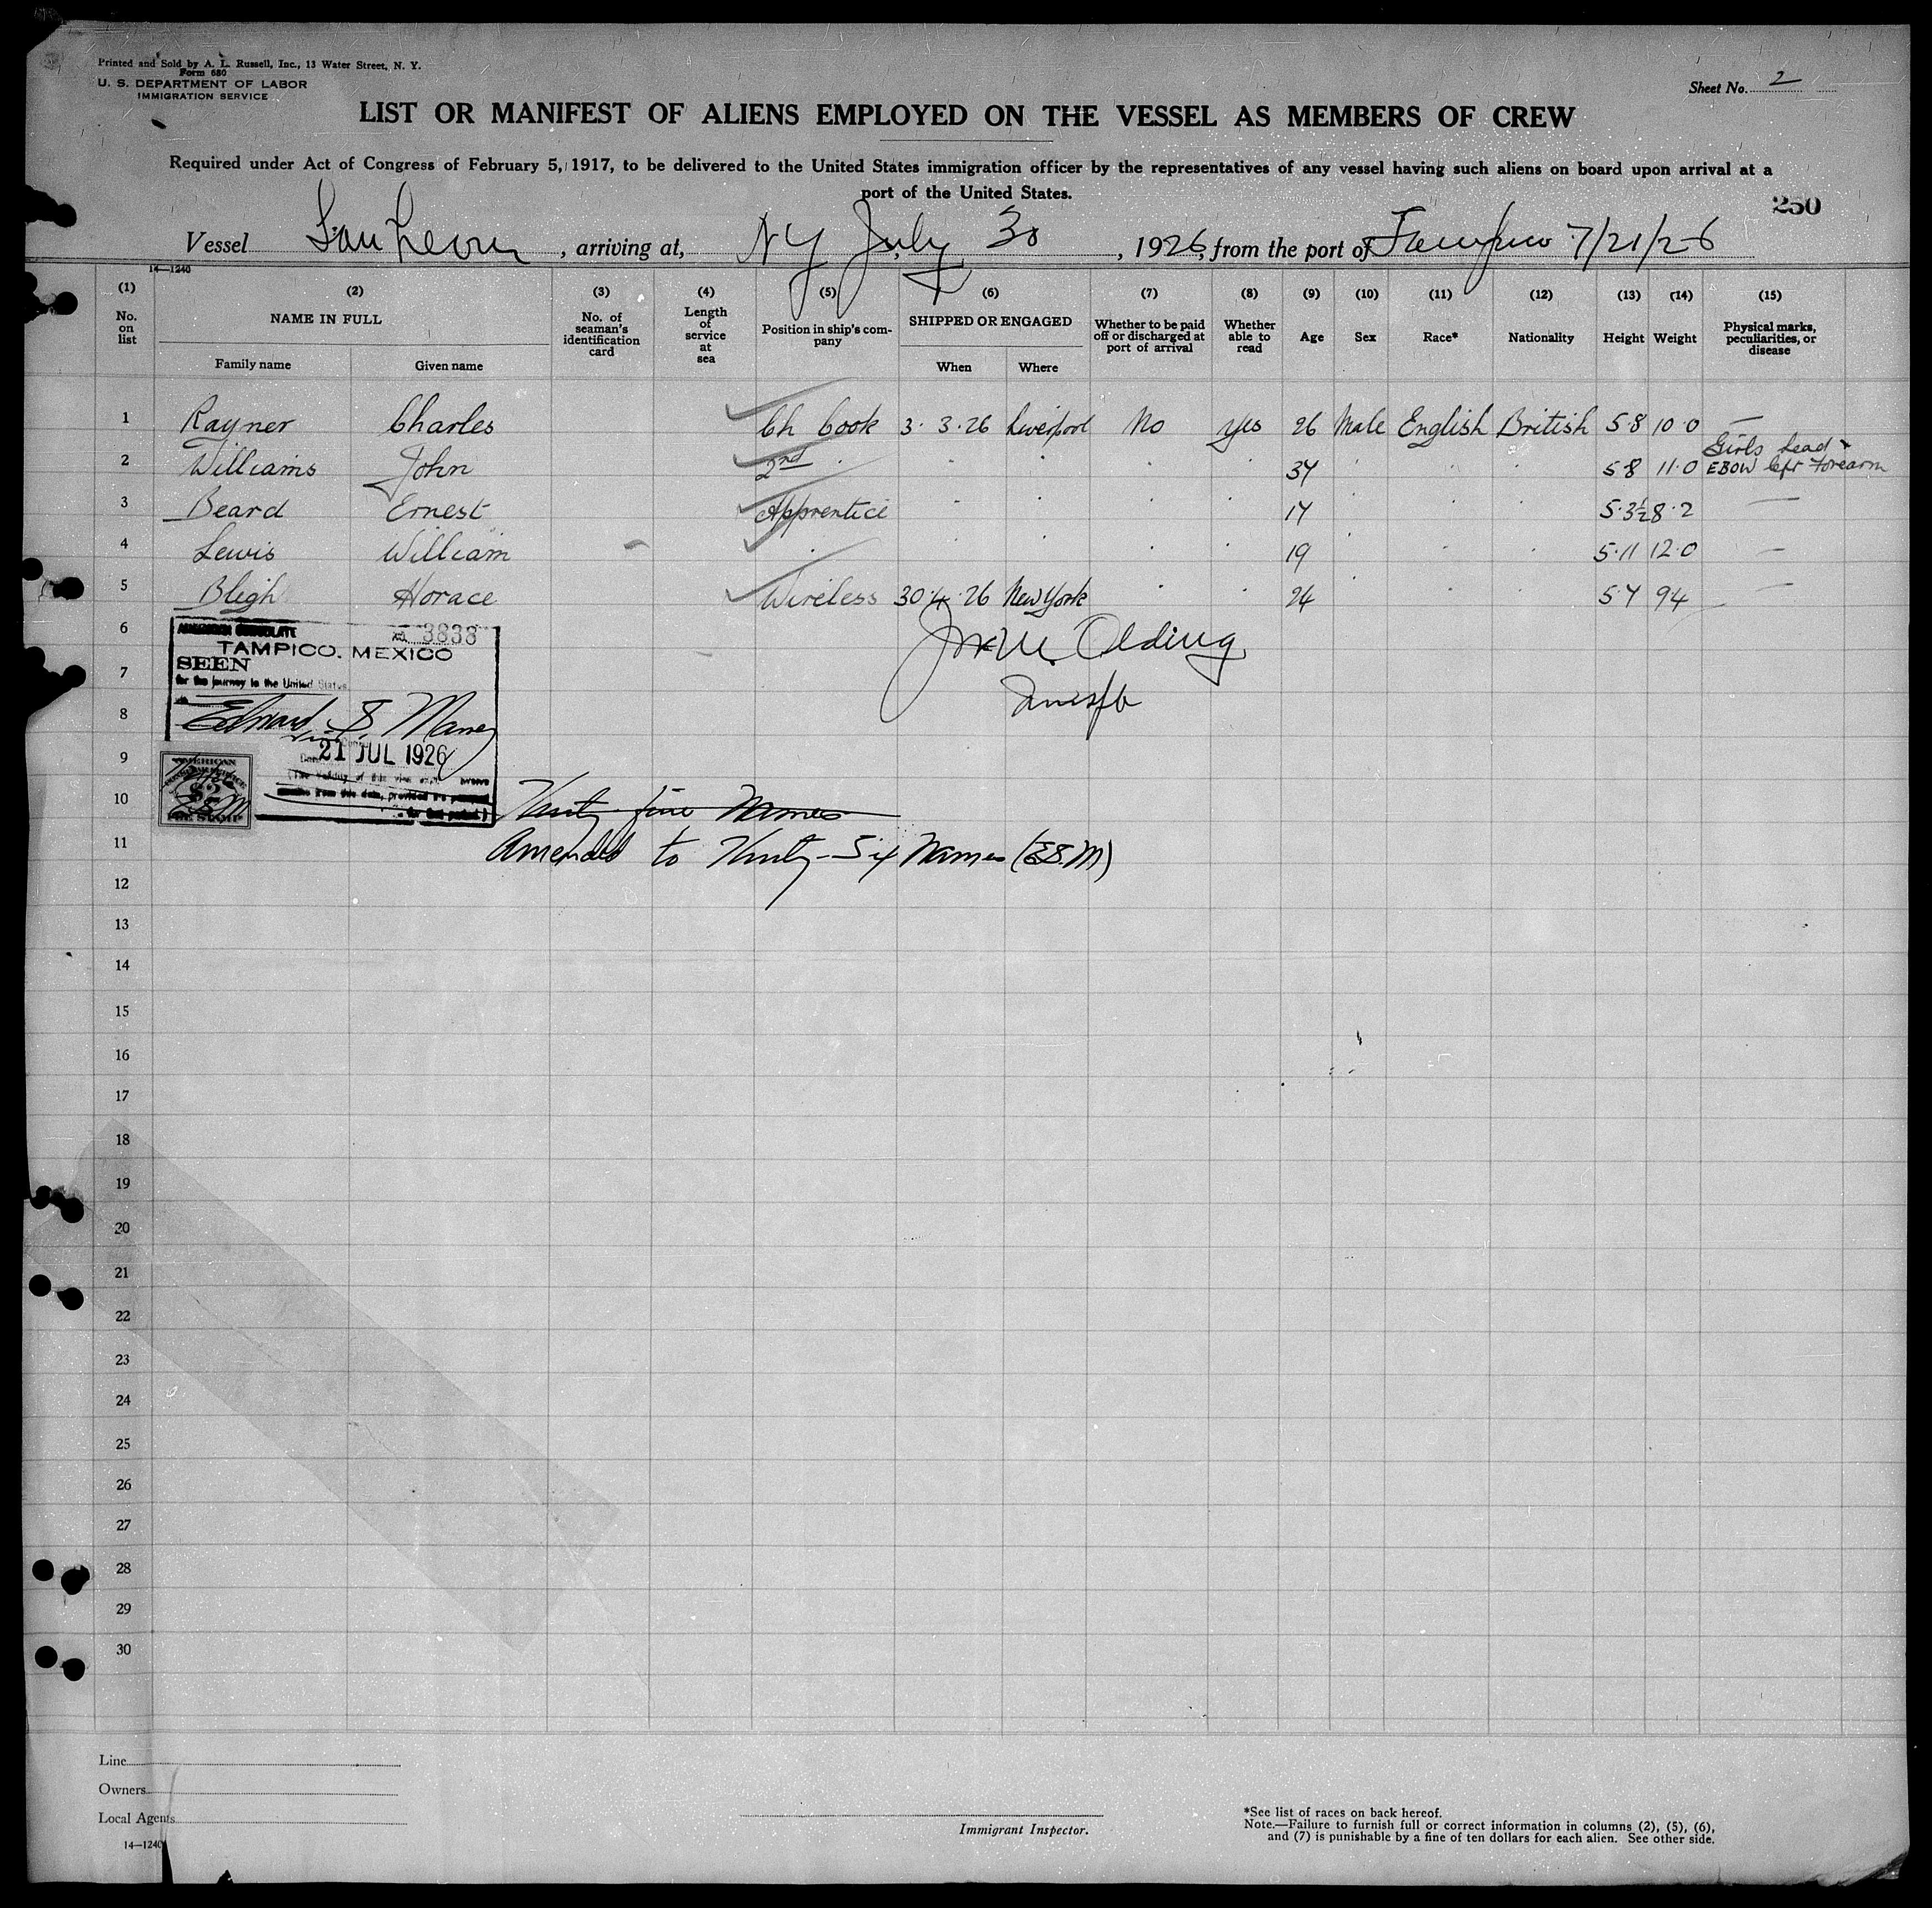 Printed and Sold by A. L. Russell, Inc., 13 Water Street, N. Y.
Form 680
U. S. DEPARTMENT OF LABOR
IMMIGRATION SERVICE
Sheet No. 2
LIST OR MANIFEST OF ALIENS EMPLOYED ON THE VESSEL AS MEMBERS OF CREW
Required under Act of Congress of February 5, 1917, to be delivered to the United States immigration officer by the representatives of any vessel having such aliens on board upon arrival at a
port of the United States.
250
Vessel San , arriving at, NY July 30, 1926, from the port of Tampico 7/21/26
14—1240
(1) (2) (3) (4) (5) (6) (7) (8) (9) (10) (11) (12) (13) (14) (15)
No. on list NAME IN FULL Family name Given name No. of seaman's identification card Length of service at sea Position in ship's company SHIPPED OR ENGAGED When Where Whether to be paid off or discharged at port of arrival Whether able to read Age Sex Race* Nationality Height Weight Physical marks, peculiarities, or disease
1 Rayner Charles Ch Cook 3.3.26 Liverpool No Yes 26 Male English British 5.8 10.0 —
2 Williams John 2nd " 34 5.8 11.0 Girls head & EBOW left Forearm
3 Beard Ernest Apprentice 17 5.3½ 8.2 —
4 Lewis William " 19 5.11 12.0 —
5 Bligh Horace Wireless 30.4.26 New York 24 5.7 9.4 —
6
7
8
9
10
11
12
13
14
15
16
17
18
19
20
21
22
23
24
25
26
27
28
29
30
AMERICAN CONSULATE
No. 3838
TAMPICO, MEXICO
SEEN
for the journey to the United States
Edward S. Maney
21 JUL 1926
AMERICAN
$2
FEE STAMP
Olding
Twenty five Names
Amended to Twenty-Six Names (E.S.M)
Line
Owners
Local Agents
14—1240
Immigrant Inspector.
*See list of races on back hereof.
Note.—Failure to furnish full or correct information in columns (2), (5), (6),
and (7) is punishable by a fine of ten dollars for each alien. See other side.